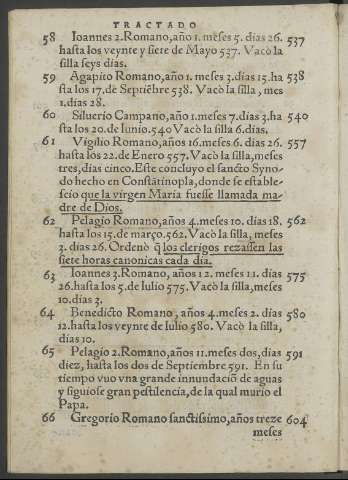 TRACTADO
58 Ioannes 2. Romano, año 1. meses 5. dias 26. 537
hasta los veynte y siete de Mayo 537. Vacò la
silla seys dias.
59 Agapito Romano, año 1. meses 3. dias 15. ha 538
sta los 17. de Septiẽbre 538. Vacò la silla, mes
1. dias 28.
60 Siluerio Campano, año 1. meses 7. dias 3. ha 540
sta los 20. de Iunio. 540 Vacò la silla 6. dias.
61 Vigilio Romano, años 16. meses 6. dias 26. 557
hasta los 22. de Enero 557. Vacò la silla, meses
tres, dias cinco. Este concluyo el sancto Syno-
do hecho en Constãtinopla, donde se estable-
scio que la virgen Maria fuesse llamada ma-
dre de Dios.
62 Pelagio Romano, años 4. meses 10. dias 18. 562
hasta los 15. de março. 562. Vacò la silla, meses
3. dias 26. Ordenò q̃ los clerigos rezassen las
siete horas canonicas cada dia.
63 Ioannes 3. Romano, años 12. meses 11. dias 575
26. hasta los 5. de Iulio 575. Vacò la silla, meses
10. dias 3.
64 Benedicto Romano, años 4. meses 2. dias 580
12. hasta los veynte de Iulio 580. Vacò la silla,
dias 10.
65 Pelagio 2. Romano, años 11. meses dos, dias 591
diez, hasta los dos de Septiembre 591. En su
tiempo vuo vna grande innundaciõ de aguas
y siguiose gran pestilencia, de la qual murio el
Papa.
66 Gregorio Romano sanctissimo, años treze 604
meses